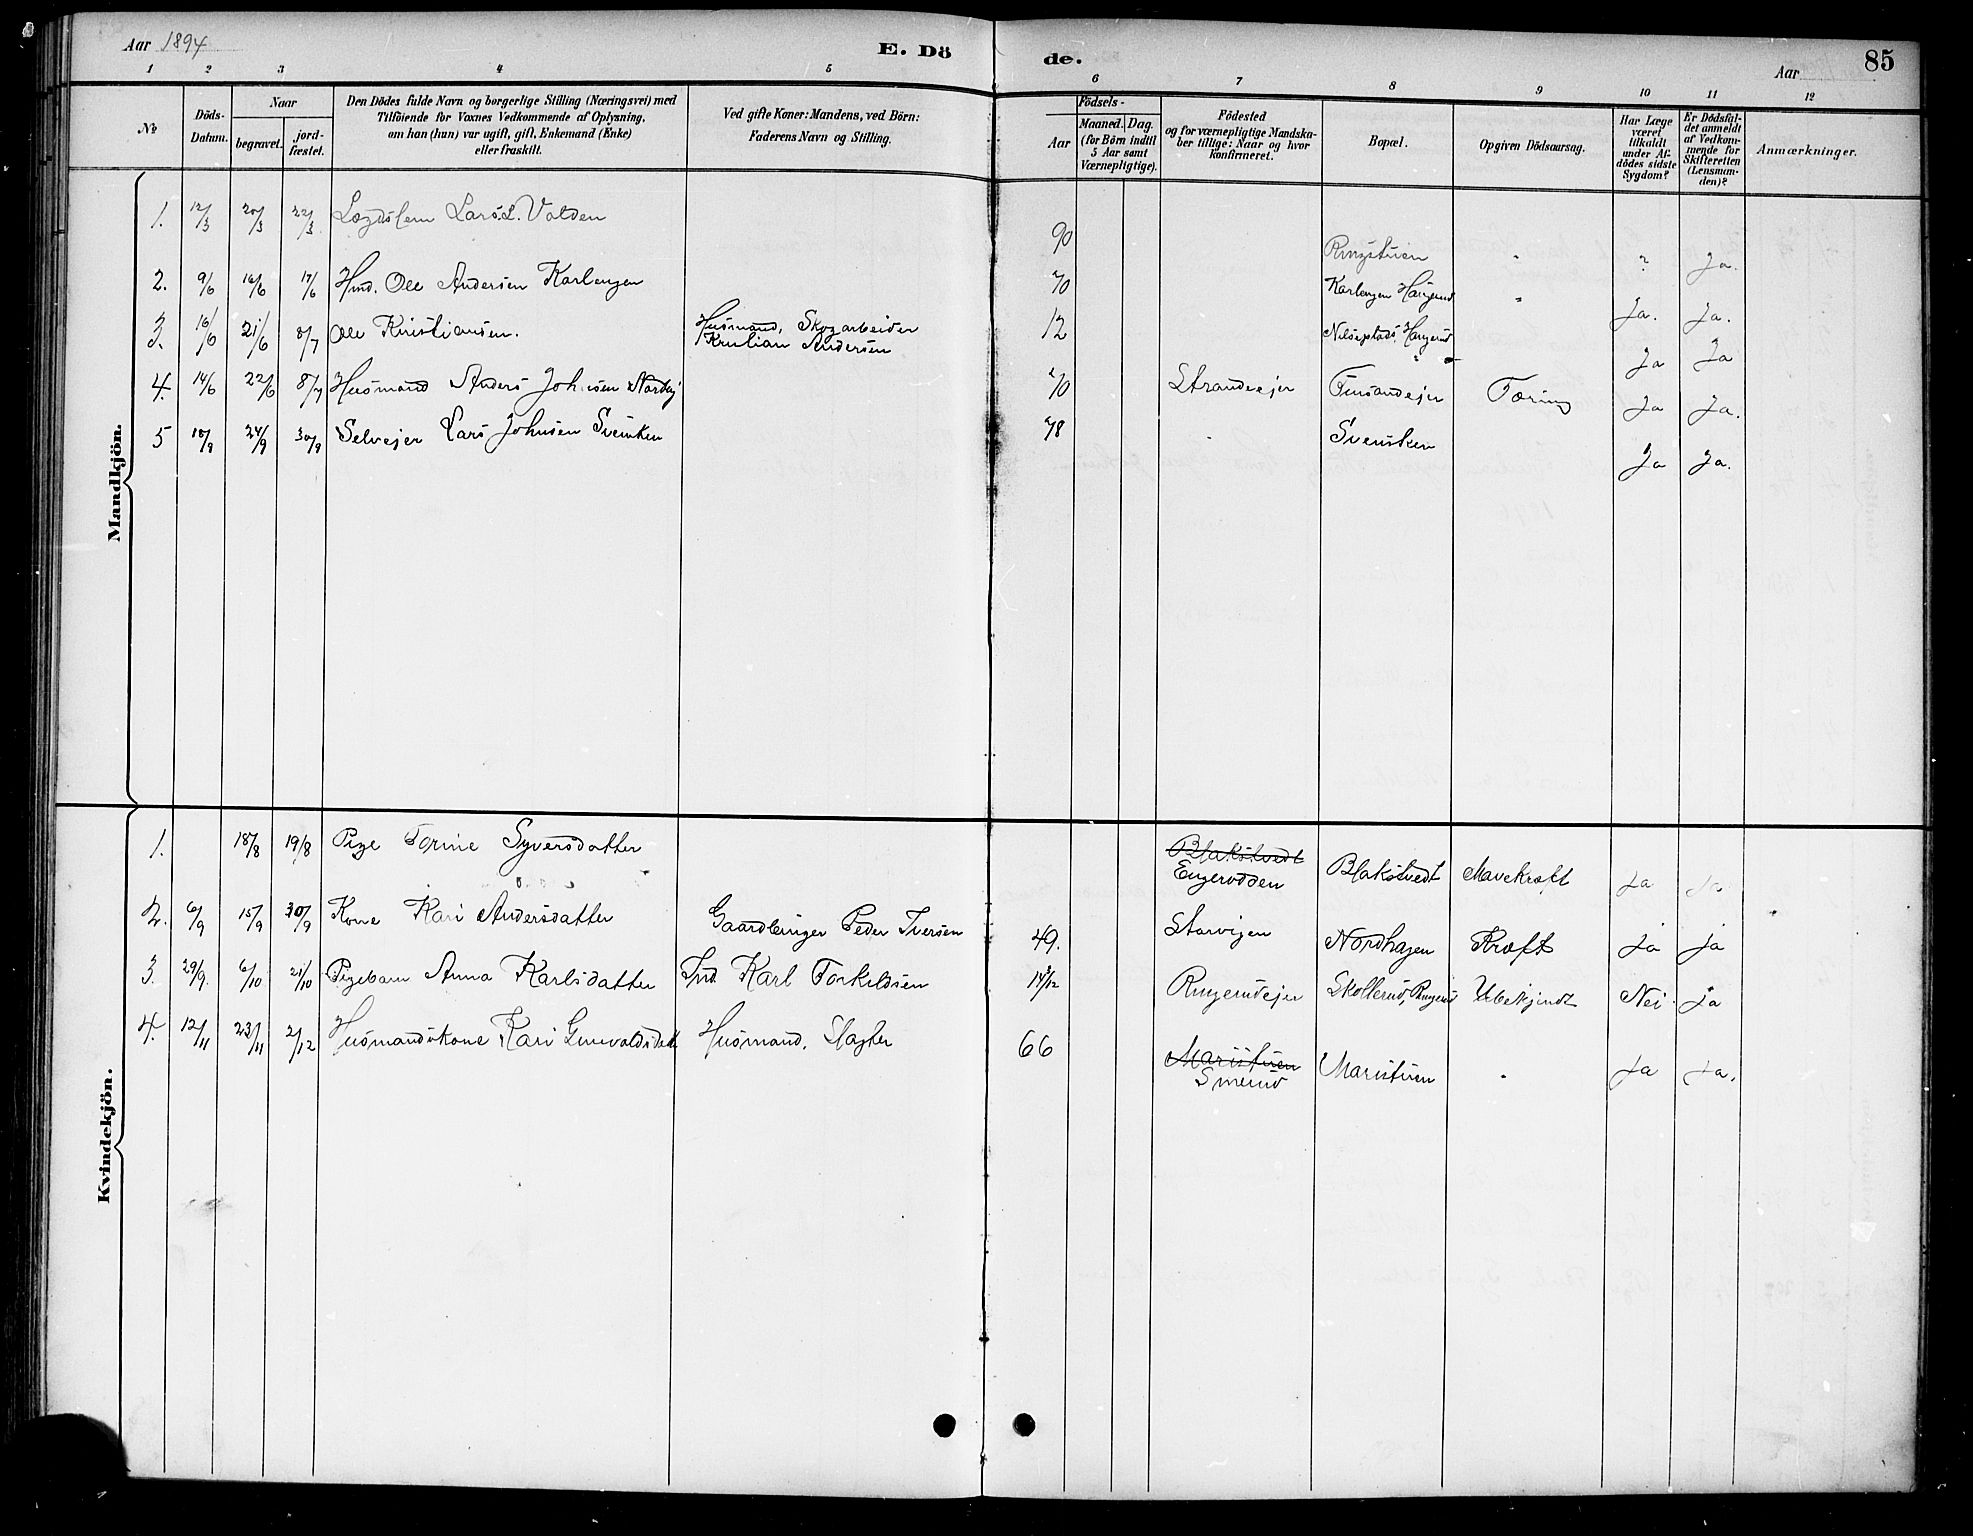 Aar 1894 E. Dö de. Aar 85
1 2 3 4 5 6 7 8 9 10 11 12
No
Döds-Datum.
Naar
begravet.
jord-fæstet.
Den Dödes fulde Navn og borgerlige Stilling (Næringsvei) med
Tilföiende for Voxnes Vedkommende af Oplysning,
om han (hun) var ugift, gift, Enkemand (Enke)
eller fraskilt.
Ved gifte Koner: Mandens, ved Börn:
Faderens Navn og Stilling.
Födsels-
Aar
Maaned. Dag.
(for Børn indtil
5 Aar samt
Værnepligtige).
Födested
og for værnepligtige Mandska-
ber tillige: Naar og hvor
konfirmeret.
Bopæl.
Opgiven Dödsaarsag.
Har Læge
været
tilkaldt
under Af-
dödes sidste
Sygdom?
Er Dödsfal-
det anmeldt
af Vedkom-
mende for
Skifteretten
(Lensman-
den)?
Anmærkninger.
Mandkjön.
1. 12/3 20/3 22/3 Lægdslem Lars L. Volden 90 Ringstuen " ? Ja.
2. 9/6 16/6 17/6 Hmd. Ole Andersen Karlengen 70 Karlengen " Ja. Ja.
3. 16/6 21/6 8/7 Ole Kristiansen. Husmand, Skogarbeider
Kristian Andersen 12 Ja Ja
4. 14/6 22/6 8/7 Husmand Anders Johnsen Nordby 70 Strandeejer Tæring Ja Ja.
5 18/9 24/9 30/9 Selvejer Lars Johnsen Svensken 78 " Svensken Ja Ja.
Kvindekjön.
1. 18/8 19/8 Pige Torine Syversdatter Blakstvedt
Engerodden Blakstvedt Mavekræft Ja Ja
2. 6/9 15/9 30/9 Kone Kari Andersdatter Gaardbruger Peder Iversen 49. Nordhagen Kræft Ja ja
3. 29/9 6/10 21/10 Pigebarn Anna Karlsdatter Ind. Karl Torkildsen Ringerudejer Skollerud, Ringerud Ubekjendt Nei ja
4. 12/11 23/11 2/12 Husmandskone Kari Husmand. Slagter 66 Maristuen
Smerud Maristuen " Ja Ja.